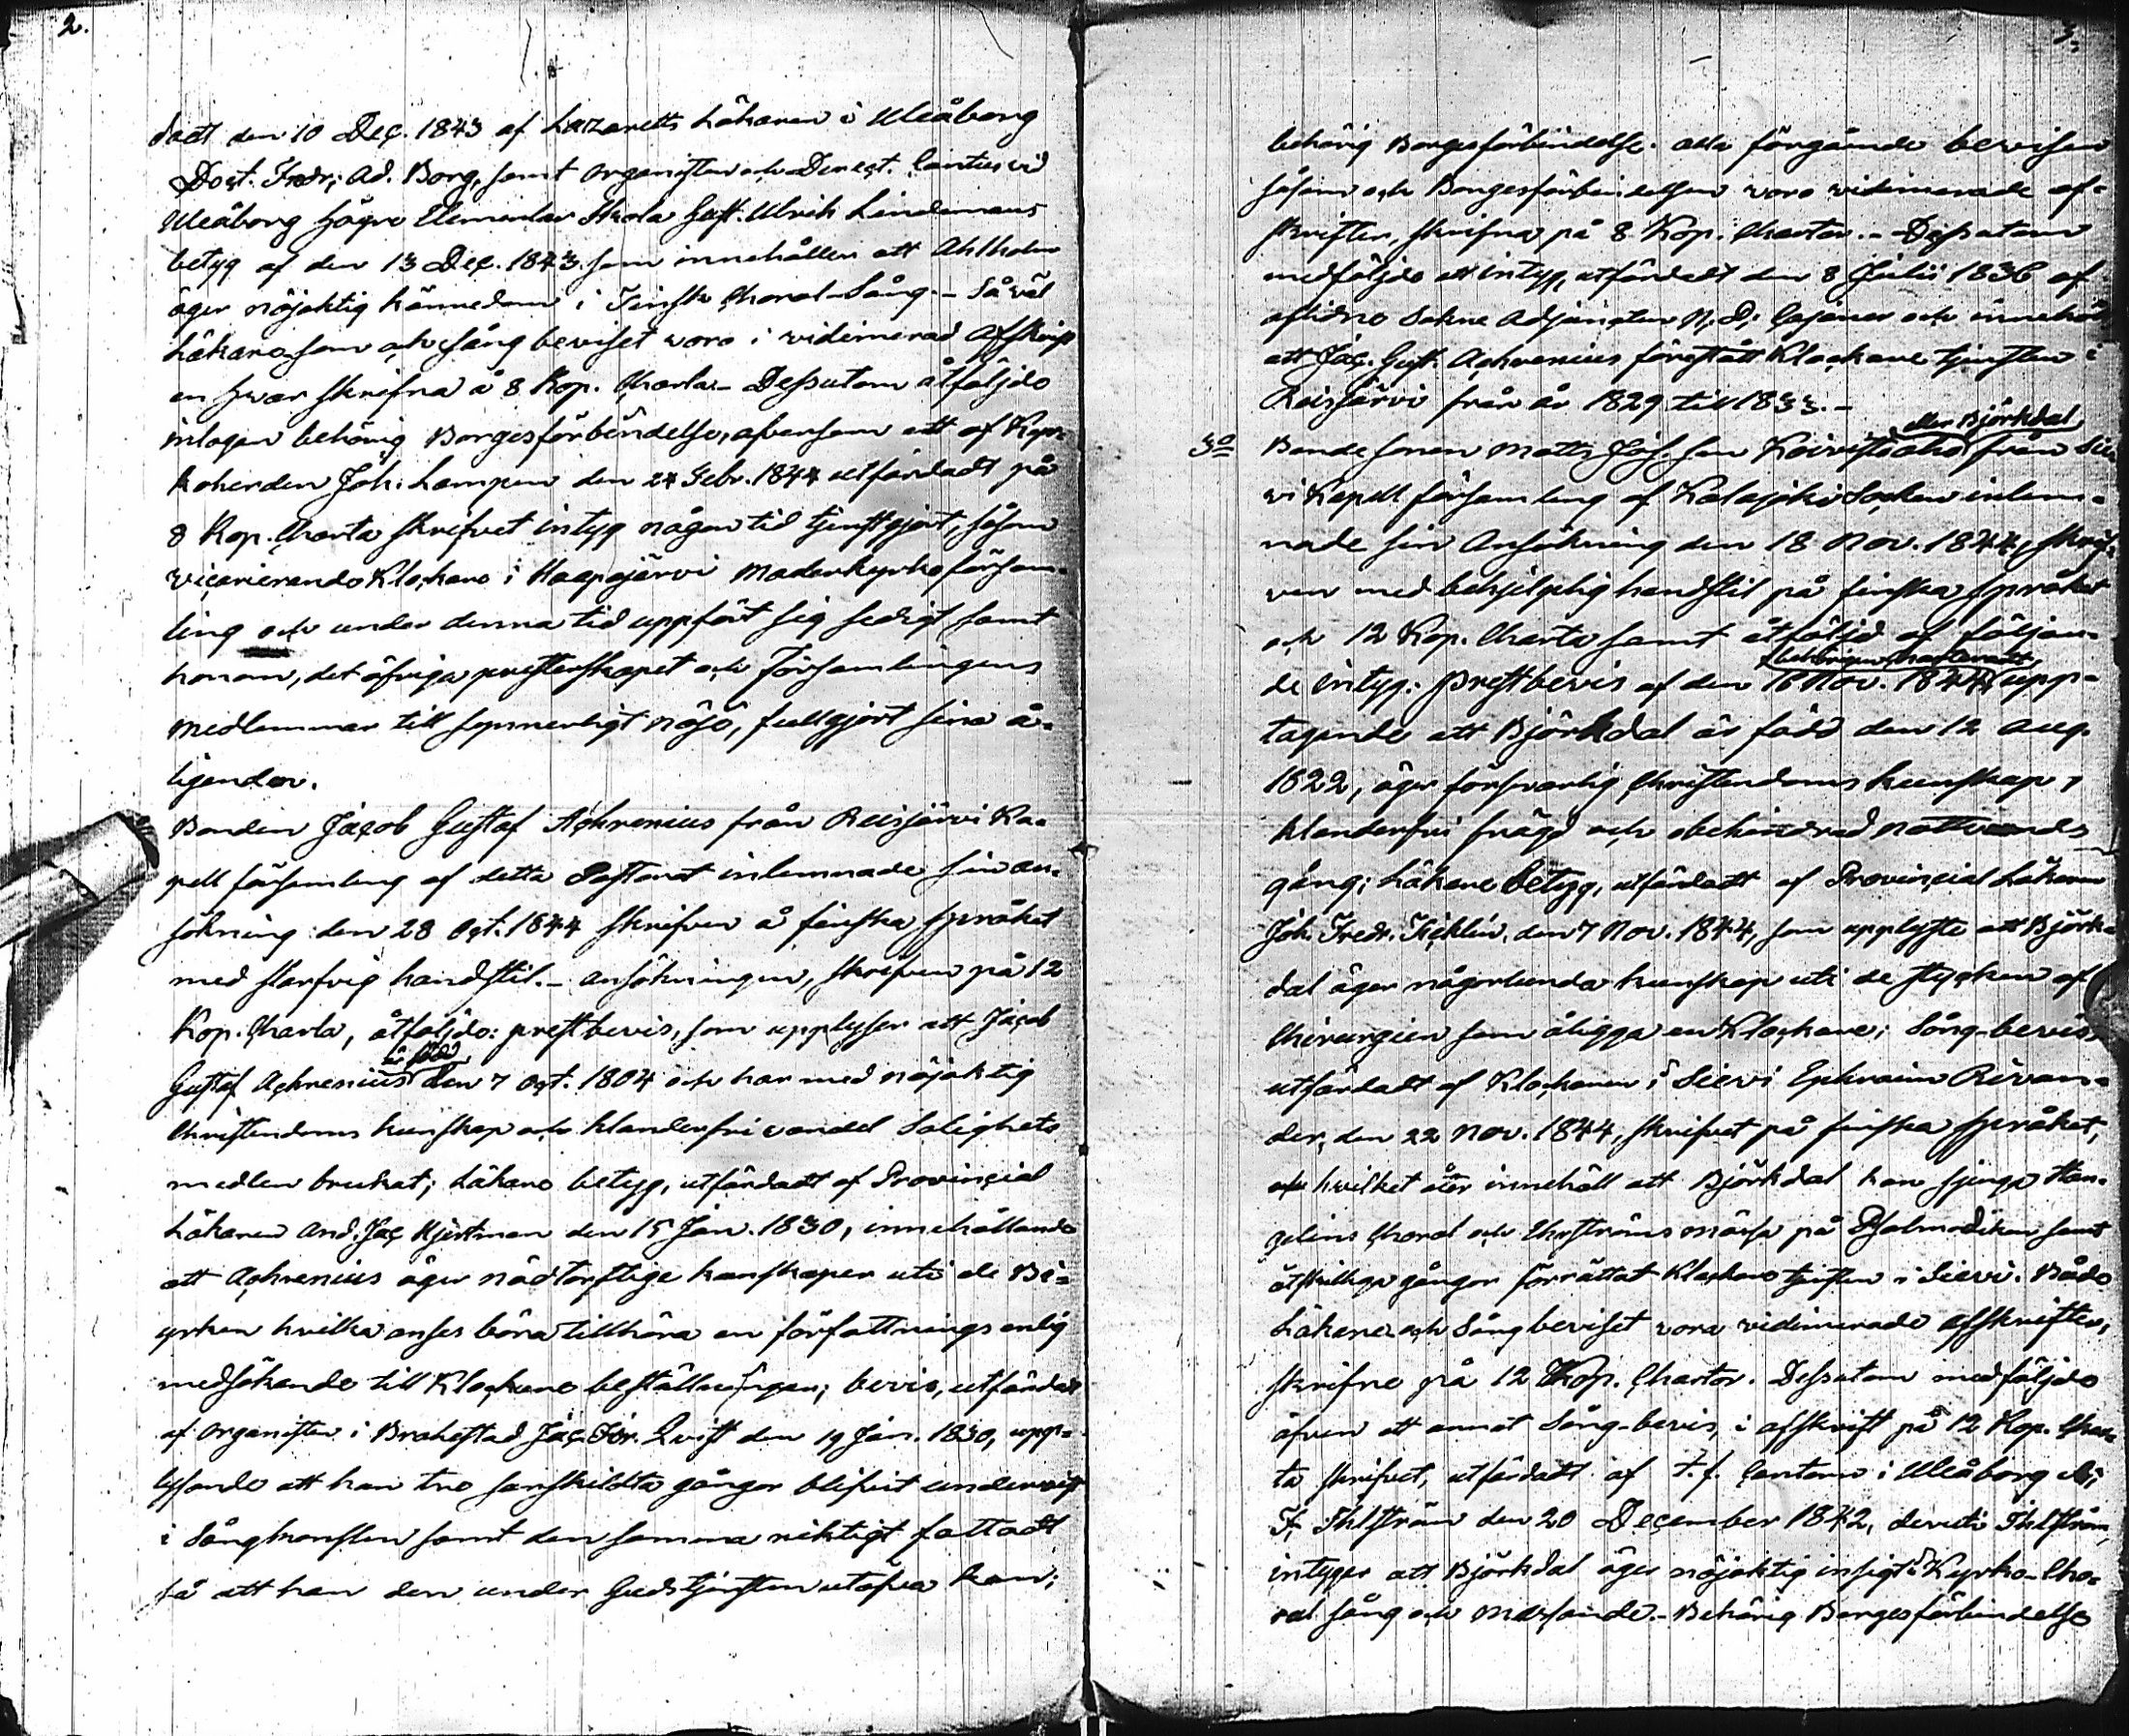 2.
dadt den 10 Dec. 1843 af Lazaretts Läkaren i Uleåborg
Doct. Fredr. Ad. Borg, samt Organisten och Direct. Cantus vid
Uleåborg högre Elementar Skola Gust. Ulrik Lindemans
betyg af den 13 Dec. 1843 som innehåller att Ahlholm
äger nöjaktig kännedom i Finsk Choral-Sång. - Såväl
Läkare som och sång beviset woro i vidimerad Afskrift
en hwar skrifna å 8 Kop. Charta. - Dessutom åtföljde
inlagan behörig Borgesförbindelse, afvensom ett af Kyr-
koherden Joh. Lampen den 24 Febr. 1844 utfärdadt på
8 Kop. Charta skrifvet intyg någon tid tjenstgjort, såsom
vicarierande Klockare i Haapajärvi Moderkyrko försam-
ling och under denna tid uppfört sig sedigt samt
honom, det öfriga presterskapet och Församlingens
medlemmar till synnerligt nöje, fullgjort sina å-
ligander.
Bonden Jacob Gustaf Achrenius från Reisjärvi Ka-
pell församling af detta Pastorat inlemnade sin an-
sökning den 28 Oct. 1844 skrifven å finska språket
med slarfvig handstil. - Ansökningen, skrifven på 12
Kop. Charta, åtföljde: prestbevis, som upplyser att Jacob
är född
Gustaf Achrenius den 7 Oct. 1804 och har med nöjaktig
Christendoms kunskap och klanderfri vandel Salighets
medlen brukat; Läkare betyg, utfärdadt af Provincial
Läkaren And. Jac Hjertman den 15 Jan. 1830, innehållande
att Achrenius äger nödtorftige kunskaper uti de Bi-
yrken hvilka anses böra tillhöra en författnings enlig
medsökande till Klockare beställningen; bevis, utfärdat
af Organisten i Brahestad Jac. For. Qvist den 19 Jan. 1830, upp-
lysande att han tre särskildta gånger blifvit undervist
i Sångkonsten samt den samma riktigt fattadt
så att han den under Gudstjensten utöfva kan;
3.
behörig Borgesförbindelse. alla förgående bevisen
såsom och Borgesförbindelsen voro vidimerade af-
skrifter, skrifna på 8 Kop. Chartor. - Dessutom
medföljde ett intyg, utfärdadt den 8 Julii 1836 af
aflidne Sakne Adjuncten N. D. Cajaner och innehöll
att Jac. Gust. Achrenius förestått Klockare tjensten i
Reisjärvi från år 1829 till 1833. -
eller Björkdal
3o Bonde sonen Matts Jos. son Koivistoaho från Sie-
vi Kapell församling af Kalajoki Socken inlem-
nade sin Ansökning den 18 Nov. 1844, skrif-
ven med behjelpelig handstil på finska språket
och 12 Kop. Charta samt åtföljd af följan-
de intyg: prestbevis af den 16 Nov. 1844 upp-
tagande att Björkdal är född den 12 Aug.
1822, äger försvarlig Christendoms kunskap,
klanderfri frägd och obehindrad nattvards
gång; Läkare betyg, utfärdadt af Provincial Läkaren
Joh. Fredr. Ticklén, den 7 Nov. 1844, som upplyste att Björk-
dal äger någorlunda kunskap uti de stycken af
Chirurgien som åligga en Klockare; Sång-bevis
utfärdadt af Klockaren i Sievi Ephraim Rivan-
der, den 22 Nov. 1844, skrifvet på finska språket,
hvilket åter innehåll att Björkdal kan sjunga Han-
gelins Choral och Ehrströms mässa på Psalmodikon samt
åtskilliga gångor förrättat Klockare tjensten i Sievi. Både
Läkare och Sång beviset vora vidimerade afskrifter,
skrifne på 12 Kop. Chartor. Dessutom medföljde
äfven ett annat Sång-bevis, i afskrift på 12 Kop. Char-
ta skrifvet, utfärdadt af t.f. Cantorn i Uleåborg
F. Ihlström den 20 December 1842, deruti Ihlström
intyger att Björkdal äger nöjaktig insigt i Kyrko-Cho-
ral sång och Messande. - Behörig Borgesförbindelse